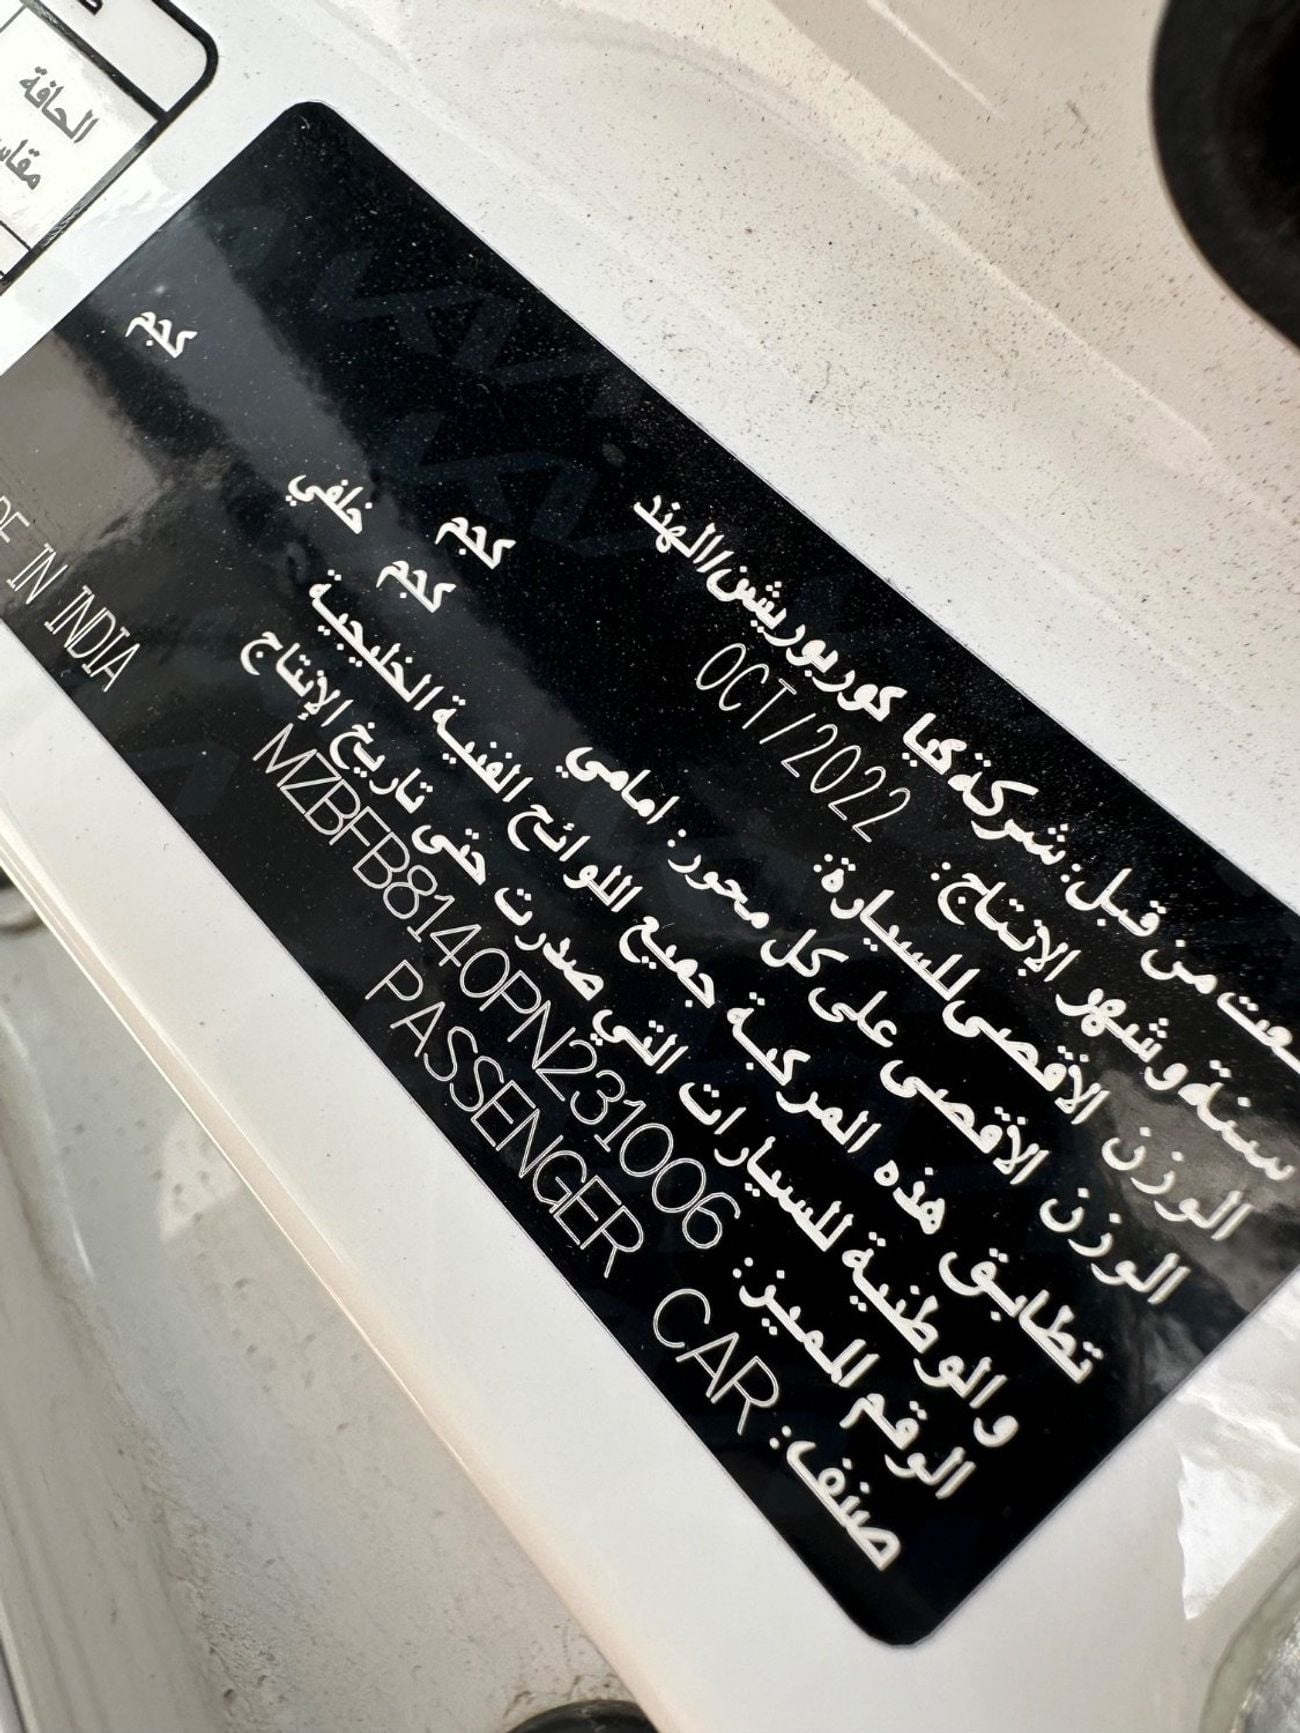 الحافة
مقاس
صنعت من قبل: شركة كيا كوربوريشن/الهند
سنة وشهر الإنتاج: OCT/2022
الوزن الأقصى للسيارة: كجم
الوزن الأقصى على كل محور: امامي كجم خلفي كجم
تطابق هذه المركبة جميع اللوائح الفنية الخليجية
والوطنية للسيارات التي صدرت حتى تاريخ الإنتاج
الرقم المميز: MZBFB8140PN231006
صنف: PASSENGER CAR
IN INDIA